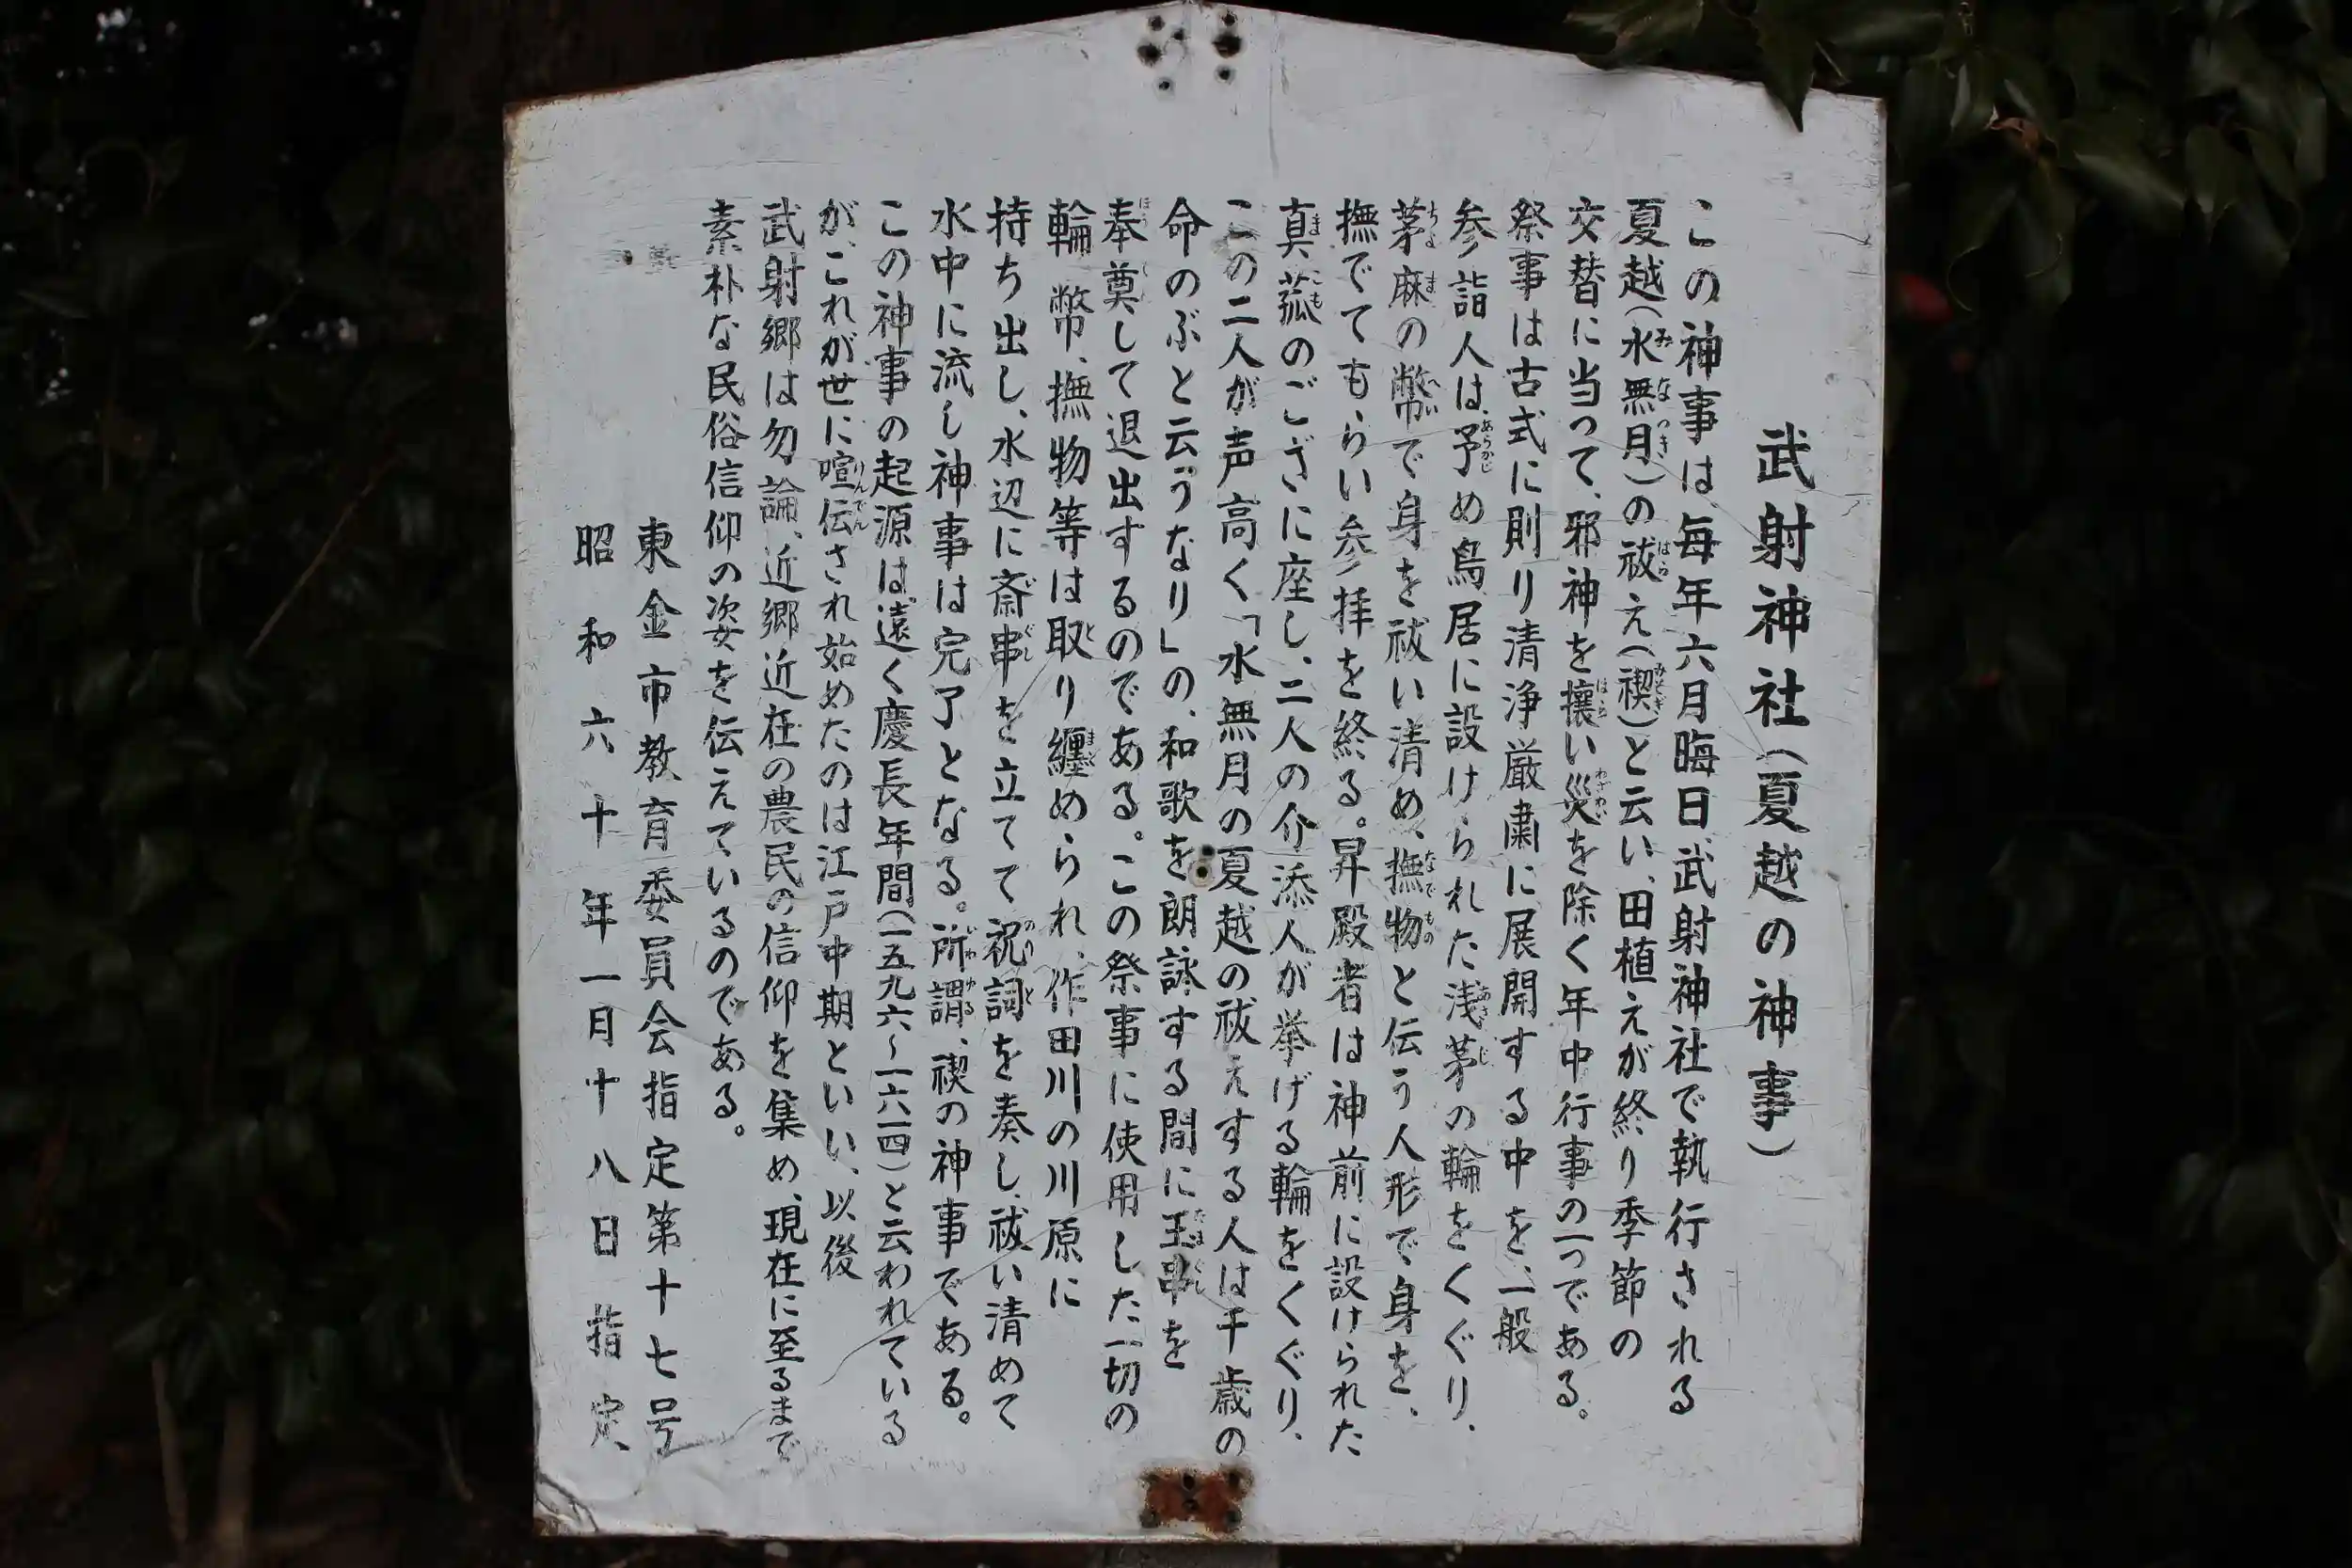 武射神社（夏越の神事）
この神事は、毎年六月晦日、武射神社で執行される
夏越（水無月）の祓え（禊）と云い、田植えが終り季節の
交替に当って、邪神を攘い災を除く年中行事の一つである。
祭事は古式に則り清浄厳粛に展開する中を、一般
参詣人は、予め鳥居に設けられた浅茅の輪をくぐり、
茅麻の幣で身を祓い清め、撫物と伝う人形で身を、
撫でてもらい参拝を終る。昇殿者は神前に設けられた
真菰のござに座し、二人の介添人が挙げる輪をくぐり、
この二人が声高く「水無月の夏越の祓えする人は千歳の
命のぶと云うなり」の、和歌を朗詠する間に玉串を
奉奠して退出するのである。この祭事に使用した一切の
輪、幣、撫物等は取り纏められ、作田川の川原に
持ち出し、水辺に斎串を立てて祝詞を奏し、祓い清めて
水中に流し神事は完了となる。所謂、禊の神事である。
この神事の起源は、遠く慶長年間（一五九六～一六一四）と云われている
が、これが世に喧伝され始めたのは江戸中期といい、以後
武射郷は勿論、近郷近在の農民の信仰を集め、現在に至るまで
素朴な民俗信仰の姿を伝えているのである。
東金市教育委員会指定第十七号
昭和六十年一月十八日指定